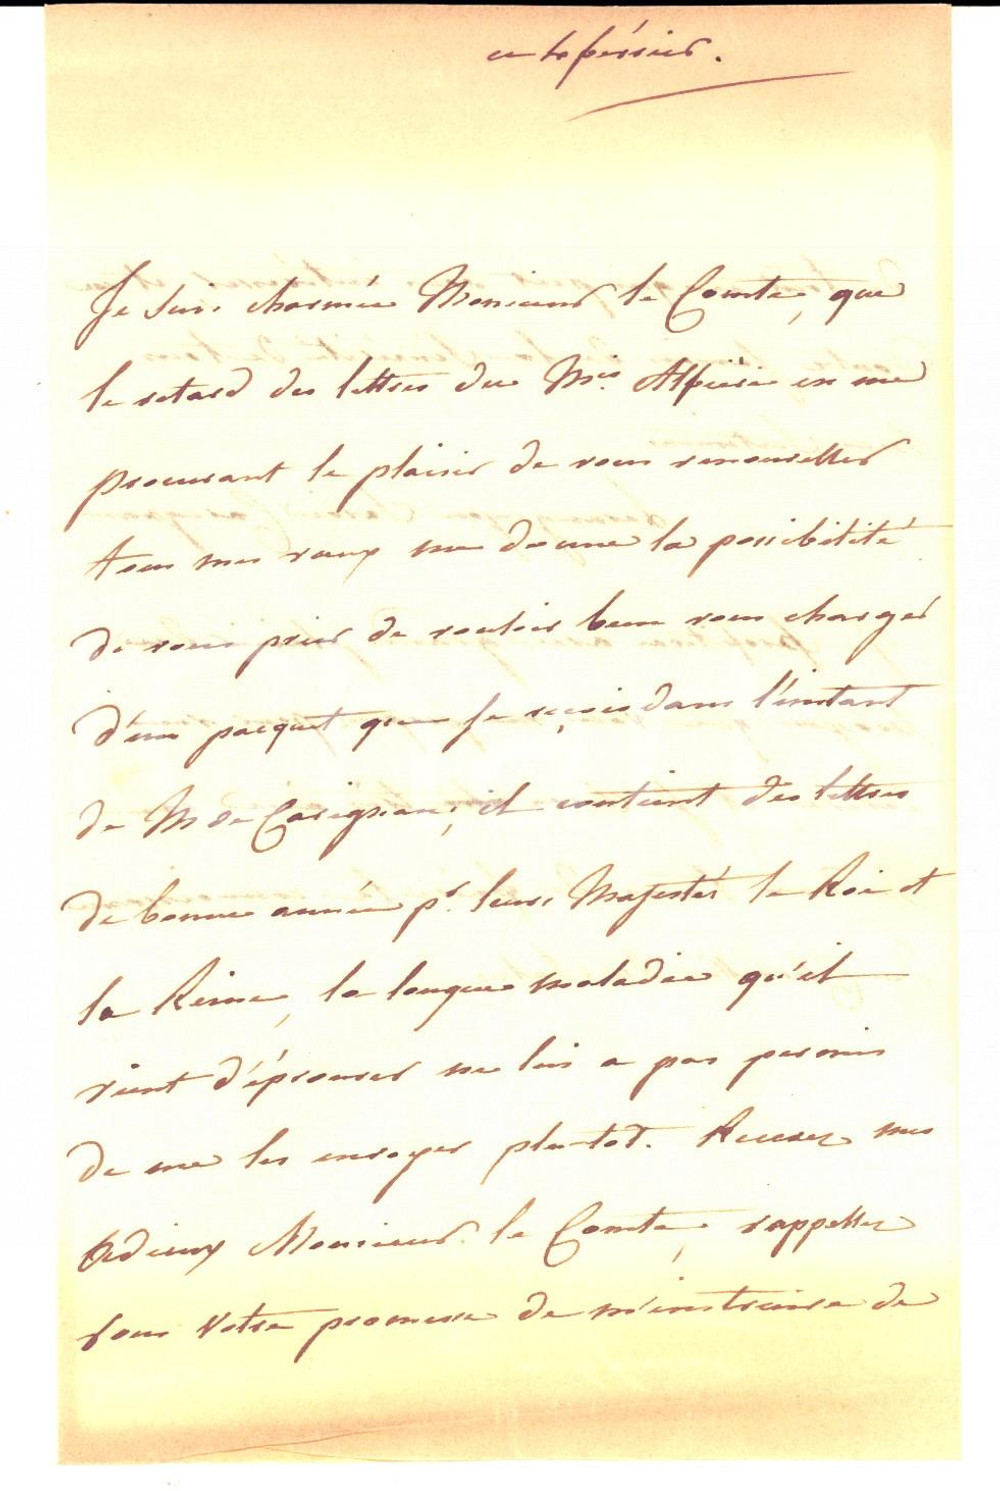 ce 6 février.
Je suis charmée Monsieur le Comte, que
le retard des lettres du Mis. Alfieri en me
procurant le plaisir de vous renouveller
tous mes vœux me donne la possibilité
de vous prier de vouloir bien vous charger
d'un pacquet que je reçois dans l'instant
de M de Carignan, il contient des lettres
de bonne année pr. leurs Majestés le Roi et
la Reine, la longue maladie qu'il
vient d'éprouver ne lui a pas permis
de me les envoyer plutot. Recevez mes
Adieux Monsieur le Comte, rappellez
vous votre promesse de m'instruire de